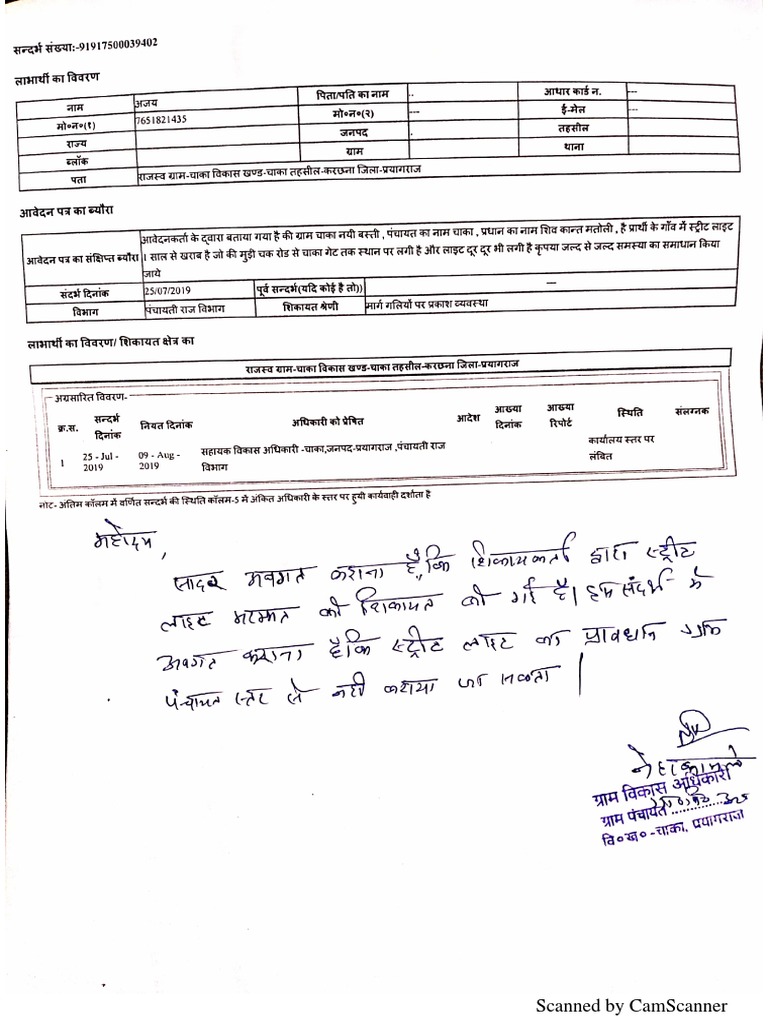 सन्दर्भ संख्या:-91917500039402
लाभार्थी का विवरण
नाम अजय पिता/पति का नाम - आधार कार्ड न. ---
मो०न०(१) 7651821435 मो०न०(२) --- ई-मेल ---
राज्य जनपद - तहसील
ब्लॉक ग्राम थाना
पता राजस्व ग्राम-चाका विकास खण्ड-चाका तहसील-करछना जिला-प्रयागराज
आवेदन पत्र का ब्यौरा
आवेदनकर्ता के द्वारा बताया गया है की ग्राम चाका नयी बस्ती , पंचायत का नाम चाका , प्रधान का नाम शिव कान्त मतोली , है प्रार्थी के गाँव में स्ट्रीट लाइट
आवेदन पत्र का संक्षिप्त ब्यौरा 1 साल से खराब है जो की गुड़ी चक रोड से चाका गेट तक स्थान पर लगी है और लाइट दूर दूर भी लगी है कृपया जल्द से जल्द समस्या का समाधान किया
जाये
संदर्भ दिनांक 25/07/2019 पूर्व सन्दर्भ(यदि कोई है तो)) ---
विभाग पंचायती राज विभाग शिकायत श्रेणी मार्ग गलियों पर प्रकाश व्यवस्था
लाभार्थी का विवरण/ शिकायत क्षेत्र का
राजस्व ग्राम-चाका विकास खण्ड-चाका तहसील-करछना जिला-प्रयागराज
अग्रसारित विवरण-
क्र.स. सन्दर्भ दिनांक नियत दिनांक अधिकारी को प्रेषित आदेश आख्या दिनांक आख्या रिपोर्ट स्थिति संलग्नक
1 25 - Jul - 2019 09 - Aug - 2019 सहायक विकास अधिकारी -चाका,जनपद-प्रयागराज ,पंचायती राज विभाग कार्यालय स्तर पर लंबित
नोट- अंतिम कॉलम में वर्णित सन्दर्भ की स्थिति कॉलम-5 मे अंकित अधिकारी के स्तर पर हुयी कार्यवाही दर्शाता है
महोदय,
सादर अवगत कराना है, कि शिकायकर्ता द्वारा स्ट्रीट
लाइट मरम्मत की शिकायत की गई है। इस संदर्भ में
अवगत कराना है कि स्ट्रीट लाइट का प्रावधान ग्राम
पंचायत स्तर से नहीं कराया जा सकता |
ग्राम विकास अधिकारी
ग्राम पंचायत
वि०ख०-चाका, प्रयागराज
Scanned by CamScanner